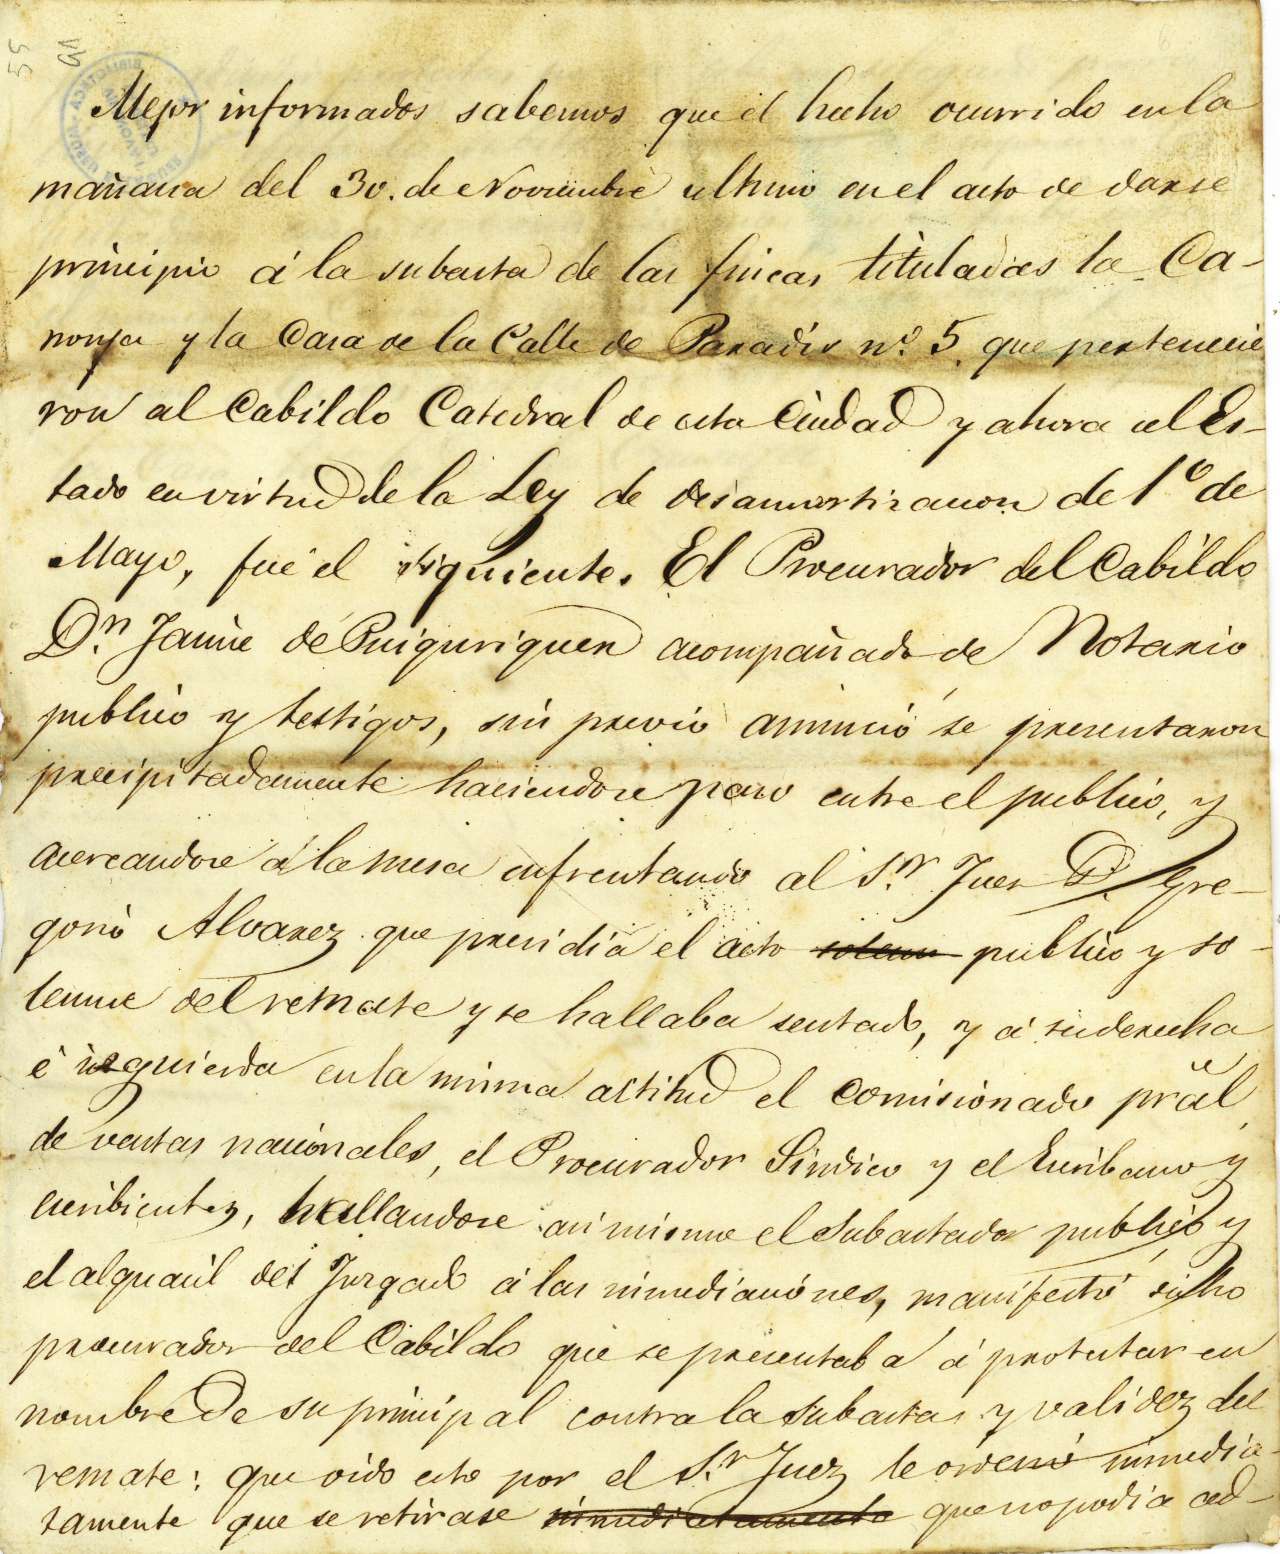 Mejor informados sabemos que el hecho ocurrido en la
mañana del 30. de Noviembre ultimo en el acto de darse
principio á la subasta de las fincas tituladas la Ca-
nonja y la Casa de la Calle de Paradis nº. 5. que pertenecie
ron al Cabildo Catedral de esta Ciudad y ahora al Es-
tado en virtud de la Ley de desamortizacion de 1º de
Mayo, fué el siguiente. El Procurador del Cabildo
Dn. Jaime de Puiguriguer acompañado de Notario
publico y testigos, sin previo anunció se presentaron
precipitadamente haciendose paso entre el publico, y
acercandose á la mesa enfrentando al Sr. Juez D. Gre-
gorio Alvarez que presidia el acto solem publico y so-
lemne del remate y se hallaba sentado, y á su derecha
é izquierda en la misma actitud el comisionado pral.
de ventas nacionales, el Procurador Sindico y el Escribano y
escribientes, hallandose asi mismo el Subastador publico y
el alguacil del Juzgado á las inmediaciónes, manifestó dicho
procurador del Cabildo que se presentaba á protestar en
nombre de su principal contra la subasta y validez del
remate: que oido esto por el Sr. Juez le ordenó inmedia-
tamente que se retirase inmediatamente que no podia ad-